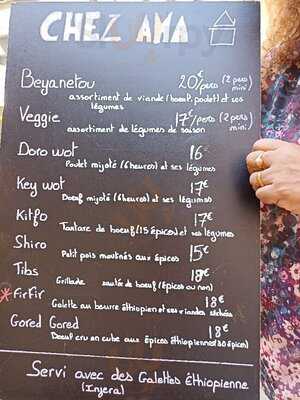 CHEZ AMA
Beyanetou 20€/pers (2 pers mini)
assortiment de viande (boeuf, poulet) et ses
légumes
Veggie 17€/pers (2 pers mini)
assortiment de légumes de saison
Doro wot 16€
Poulet mijoté (6 heures) et ses légumes
Key wot 17€
Boeuf mijoté (6 heures) et ses légumes
Kitfo 17€
Tartare de boeuf (15 épices) et ses légumes
Shiro 15€
Petit pois moulinés aux épices
Tibs 18€
Grillade sautée de boeuf (Épices ou non)
* FirFir 18€
Galette au beurre éthiopien et ses viandes séchées
Gored Gared 18€
Boeuf cru en cube aux épices éthiopiennes (30 épices)
Servi avec des Galettes Éthiopienne
(Injera)